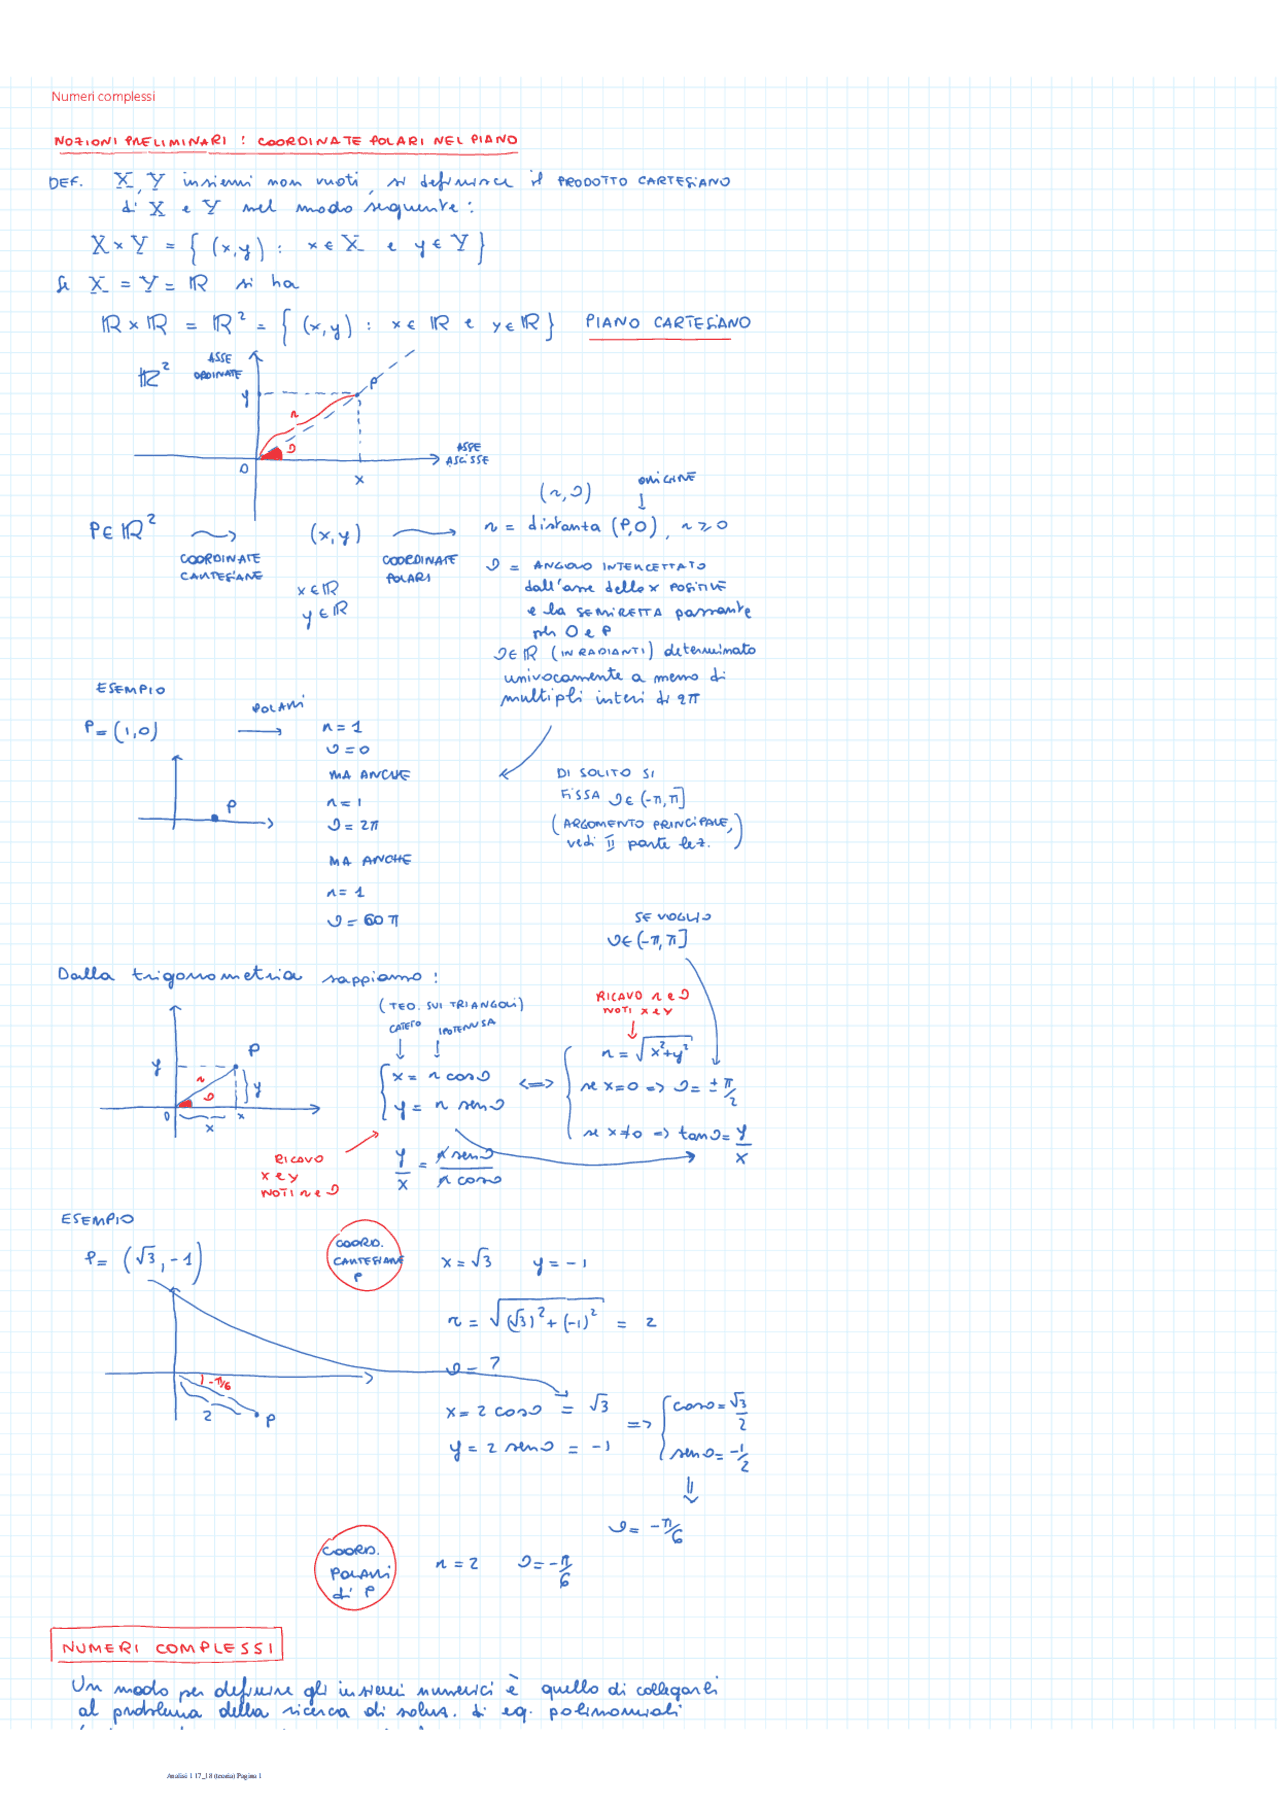 Numeri complessi
NOZIONI PRELIMINARI : COORDINATE POLARI NEL PIANO
DEF. X, Y insiemi non vuoti, si definisce il PRODOTTO CARTESIANO
di X e Y nel modo seguente:
X × Y = { (x,y) : x ∈ X e y ∈ Y }
Se X = Y = ℝ si ha
ℝ × ℝ = ℝ² = { (x,y) : x ∈ ℝ e y ∈ ℝ } PIANO CARTESIANO
ℝ² ASSE ORDINATE
y P
r ϑ
O x ASSE ASCISSE
(r,ϑ) ORIGINE
P ∈ ℝ² (x,y) r = distanza (P,O), r ≥ 0
COORDINATE CARTESIANE COORDINATE POLARI
x ∈ ℝ
y ∈ ℝ
ϑ = ANGOLO INTERCETTATO
dall'asse delle x POSITIVE
e la SEMIRETTA passante
per O e P
ϑ ∈ ℝ (IN RADIANTI) determinato
univocamente a meno di
multipli interi di 2π
ESEMPIO
P = (1,0) POLARI r = 1
ϑ = 0
MA ANCHE
r = 1
ϑ = 2π
MA ANCHE
r = 1
ϑ = 60π
P
DI SOLITO SI
FISSA ϑ ∈ (-π,π]
(ARGOMENTO PRINCIPALE,
vedi II parte lez.)
SE VOGLIO
ϑ ∈ (-π,π]
Dalla trigonometria sappiamo:
(TEO. SUI TRIANGOLI)
CATETO IPOTENUSA
RICAVO r e ϑ
NOTI x e y
y P
r ϑ y
O x x
{ x = r cosϑ
y = r senϑ
<=>
{ r = √x²+y²
se x=0 => ϑ = ±π/2
se x≠0 => tanϑ = y/x
RICAVO
x e y
NOTI r e ϑ
y/x = r senϑ / r cosϑ
ESEMPIO
P = (√3, -1)
COORD.
CARTESIANE
P
x = √3 y = -1
r = √(√3)² + (-1)² = 2
ϑ = ?
-π/6
2 P
x = 2 cosϑ = √3
y = 2 senϑ = -1
=> { cosϑ = √3/2
senϑ = -1/2
ϑ = -π/6
COORD.
POLARI
di P
r = 2 ϑ = -π/6
NUMERI COMPLESSI
Un modo per definire gli insiemi numerici è quello di collegarli
al problema della ricerca di soluz. di eq. polinomiali
Analisi 1 17_18 (teoria) Pagina 1